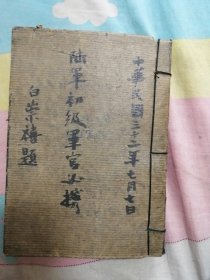 中華民國三十二年七月七日
陸軍初級軍官必携
白崇禧題